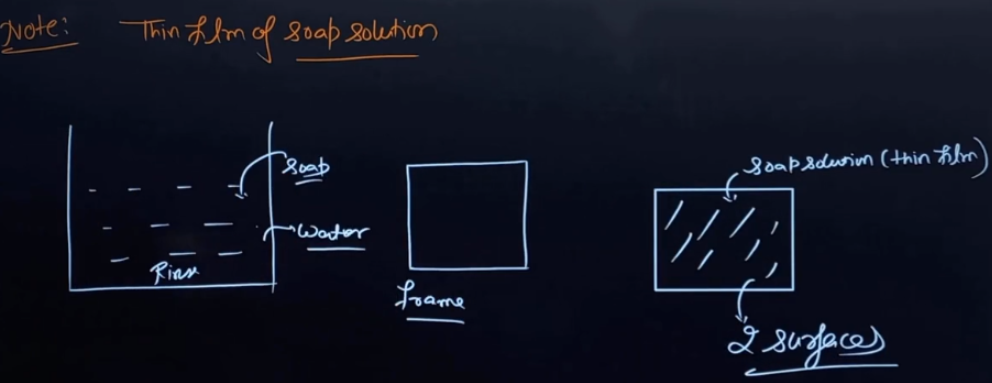 Note: Thin film of soap solution
soap
water
Rinse
frame
soap solution (thin film)
2 surfaces